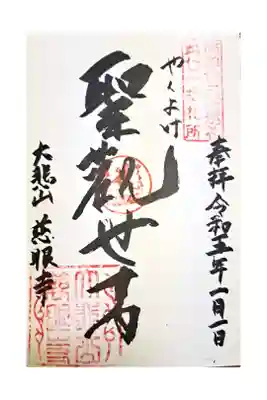 奉拝 令和五年一月一日
やくよけ
聖観世音
大悲山 慈眼寺